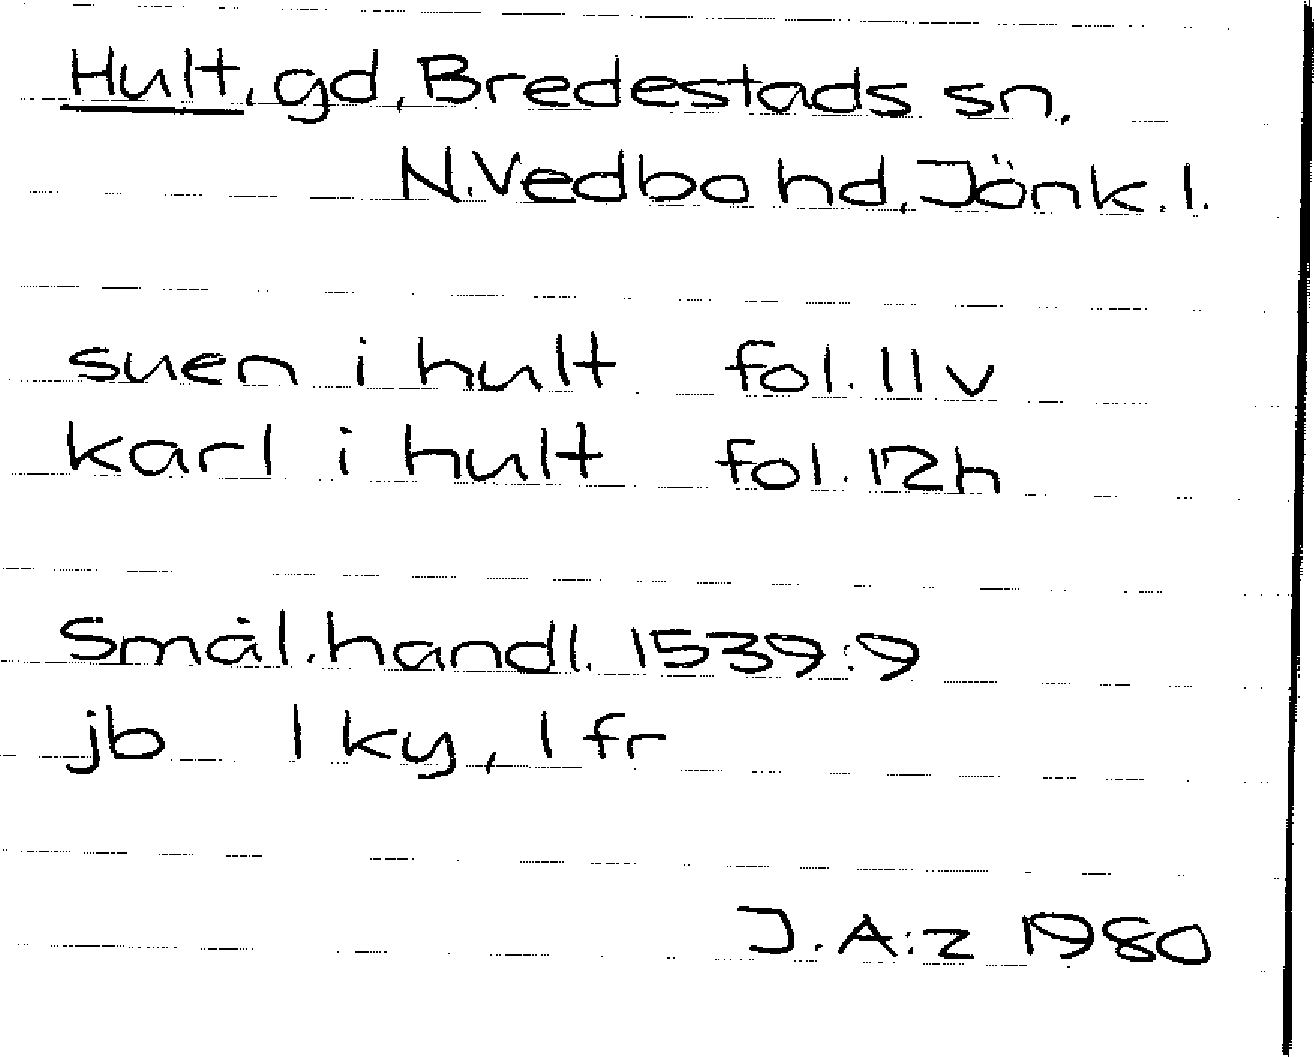 Hult, gd, Bredestads sn.
N. Vedbo hd, Jönk. l.
suen i hult fol. 11 v
karl i hult fol. 12 h
Smål. handl. 1539:9
jb 1 ky, 1 fr
J. A:z 1980